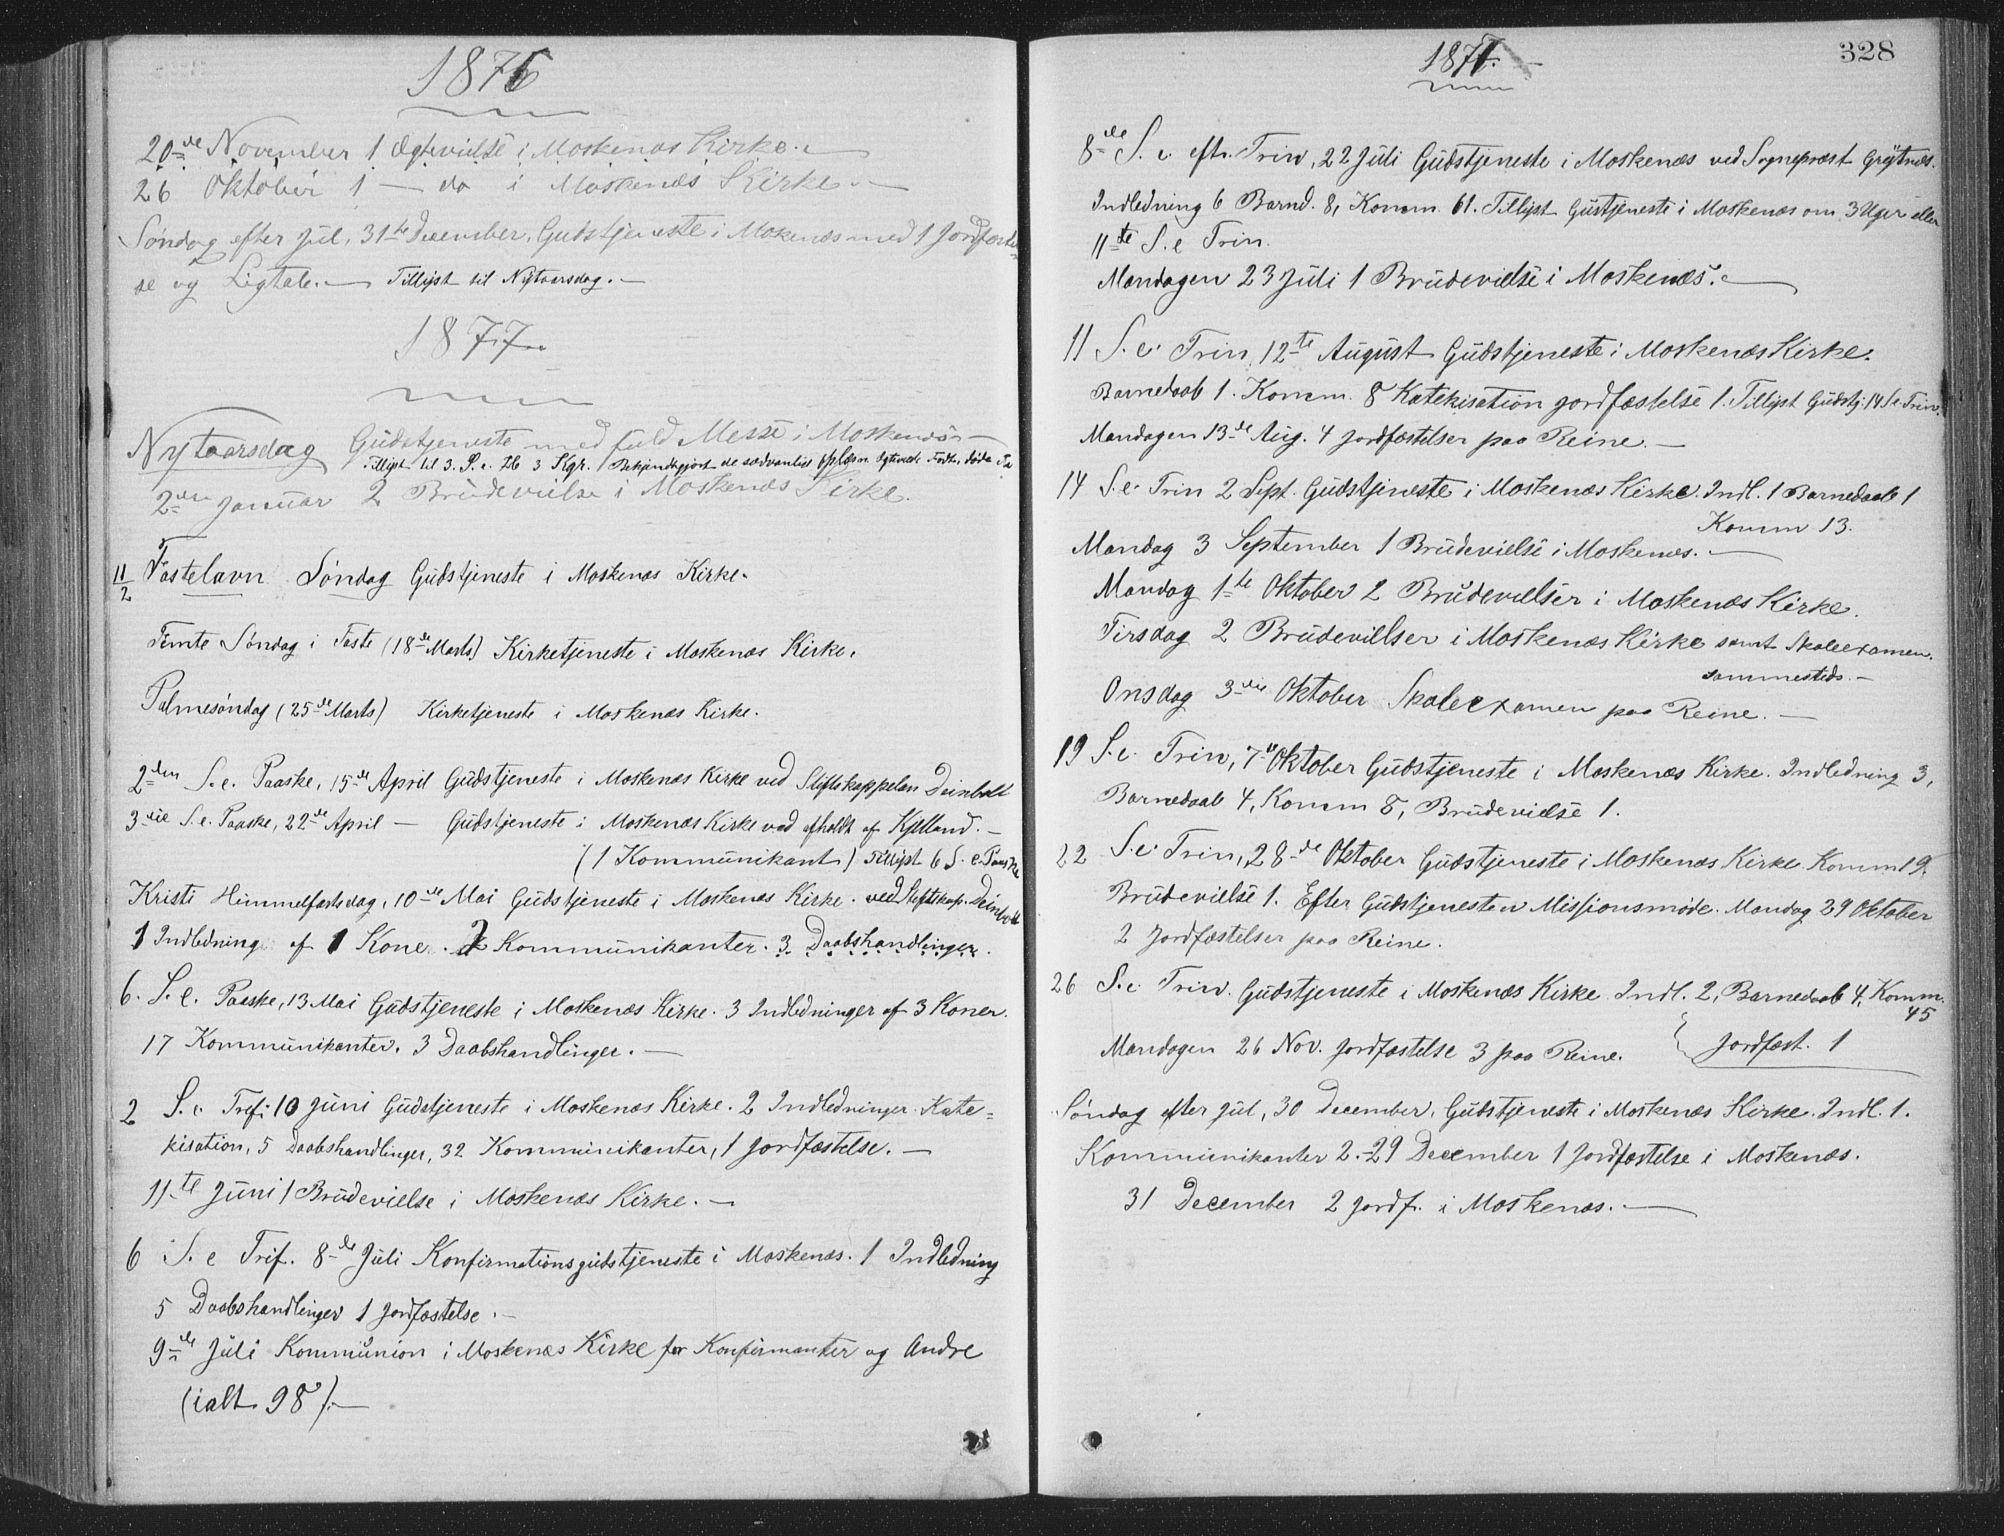 1876
20de November 1 Ægtevielse i Moskenæs Kirke. —
26 Oktober 1 — do i Moskenæs Kirke. —
Søndag efter Jul, 31te December, Gudstjeneste i Mokenæs med 1 Jordfæstel=
se og Ligtale. — Tillyst til Nytaarsdag. —
1877
Nytaarsdag Gudstjeneste med fuld Messe i Moskenæs —
Tillyst til 3. S. e. H6 3 Kgr. Bekjendtgjort de sædvanlige Oplæsn. Ægteviede Født., døde
2den Januar 2 Brudevielse i Moskenæs Kirke.
11/2 Fastelavn Søndag Gudstjeneste i Moskenæs Kirke.
Femte Søndag i Faste (18de Marts) Kirketjeneste i Moskenæs Kirke.
Palmesøndag (25de Marts) Kirketjeneste i Moskenæs Kirke.
2den S. e. Paaske, 15de April Gudstjeneste i Moskenæs Kirke ved Stiftskappelan Deinboll
3die S. e. Paaske, 22de April — Gudstjeneste i Moskenæs Kirke ved afholdt af Kjelland. —
(1 Kommunikant) Tillyst 6 S. e. Paaske
Kristi Himmelfartsdag, 10de Mai Gudstjeneste i Moskenæs Kirke. ved Stiftskap. Deinboll
1 Indledning af 1 Kone. 2 Kommunikanter. 3 Daabshandlinger.
6. S. e. Paaske, 13 Mai Gudstjeneste i Moskenæs Kirke. 3 Indledninger af 3 Koner.
17 Kommunikanter. 3 Daabshandlinger. —
2 S. e. Tref: 10 Juni Gudstjeneste i Moskenæs Kirke. 2 Indledninger. Kate=
kisation, 5 Daabshandlinger, 32 Kommunikanter, 1 Jordfæstelse. —
11te Juni 1 Brudevielse i Moskenæs Kirke. —
6 S. e Tref. 8de Juli Konfirmationsgudstjeneste i Moskenæs. 1 Indledning
5 Daabshandlinger 1 Jordfæstelse. —
9de Juli Kommunion i Moskenæs Kirke for Konfirmanter og Andre
(ialt 98). —
1877. —
328
8de S. e. eft. Trin, 22 Juli Gudstjeneste i Moskenæs ved Sognepræst Grytnæs.
Indledning 6 Barnd. 8, Komm. 61. Tillyst Gustjeneste i Moskenæs om 3 Uger eller
11te S. e Trin.
Mandagen 23 Juli 1 Brudevielse i Moskenæs. —
11 S. e. Trin, 12te August Gudstjeneste i Moskenæs Kirke.
Barnedaab 1. Komm. 8 Katekisation Jordfæstelse 1. Tillyst Gudstj. 14 S e Trin.
Mandagen 13de Aug. 4 Jordfæstelser paa Reine. —
14 S. e. Trin 2 Sept. Gudstjeneste i Moskenæs Kirke. Indl. 1 Barnedaab 1
Komm 13.
Mandag 3 September 1 Brudevielse i Moskenæs. —
Mandag 1te Oktober 2 Brudevielser i Moskenæs Kirke.
Tirsdag 2 Brudevillser i Moskenæs Kirke samt Skoleexamen.
sammesteds. —
Onsdag 3die Oktober Skoleexamen paa Reine. —
19 S. e. Trin, 7de Oktober Gudstjeneste i Moskenæs Kirke. Indledning 3,
Barnedaab 4, Komm 8, Brudevielse 1.
22 S. e. Trin, 28de Oktober Gudstjeneste i Moskenæs Kirke. Komm 19.
Brudevielse 1. Efter Gudstjenesten Missionsmøde. Mandag 29 Oktober
2 Jordfæstelser paa Reine.
26 S. e Trin. Gudstjeneste i Moskenæs Kirke Indl. 2, Barnedaab 4, Komm.
45
Mandagen 26 Nov. Jordfæstelse 3 paa Reine. Jordfæst. 1
Søndag efter Jul, 30 December, Gudstjeneste i Moskenæs Kirke. Indl. 1.
Kommunikanter 2. - 29 December 1 Jordfæstelse i Moskenæs.
31 December 2 Jordf. i Moskenæs. —